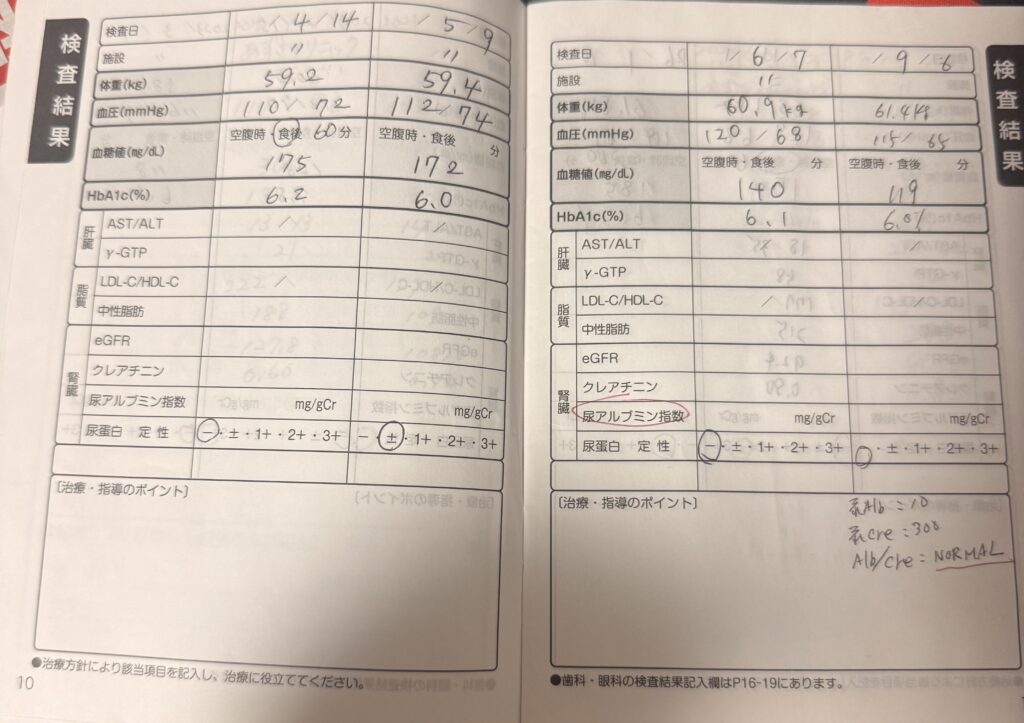 検査結果
検査日 / 4 / 14 / 5 / 9
施設 〃 〃
体重(kg) 59.2 59.4
血圧(mmHg) 110 / 72 112 / 74
血糖値(mg/dL) 空腹時・食後 60分 空腹時・食後 分
175 172
HbA1c(%) 6.2 6.0
肝臓
AST/ALT
γ-GTP
脂質
LDL-C/HDL-C / /
中性脂肪
腎臓
eGFR
クレアチニン
尿アルブミン指数 mg/gCr mg/gCr
尿蛋白 定性 −・±・1+・2+・3+ −・±・1+・2+・3+
〔治療・指導のポイント〕
●治療方針により該当項目を記入し、治療に役立ててください。
10
検査結果
検査日 / 6 / 7 / 9 / 6
施設 〃
体重(kg) 60.9kg 61.4kg
血圧(mmHg) 120 / 68 115 / 65
血糖値(mg/dL) 空腹時・食後 分 空腹時・食後 分
140 119
HbA1c(%) 6.1 6.0%
肝臓
AST/ALT
γ-GTP
脂質
LDL-C/HDL-C / /
中性脂肪
腎臓
eGFR
クレアチニン
尿アルブミン指数 mg/gCr mg/gCr
尿蛋白 定性 −・±・1+・2+・3+ ・±・1+・2+・3+
〔治療・指導のポイント〕
尿Alb = 10
尿cre = 300
Alb/cre = NORMAL
●歯科・眼科の検査結果記入欄はP16-19にあります。